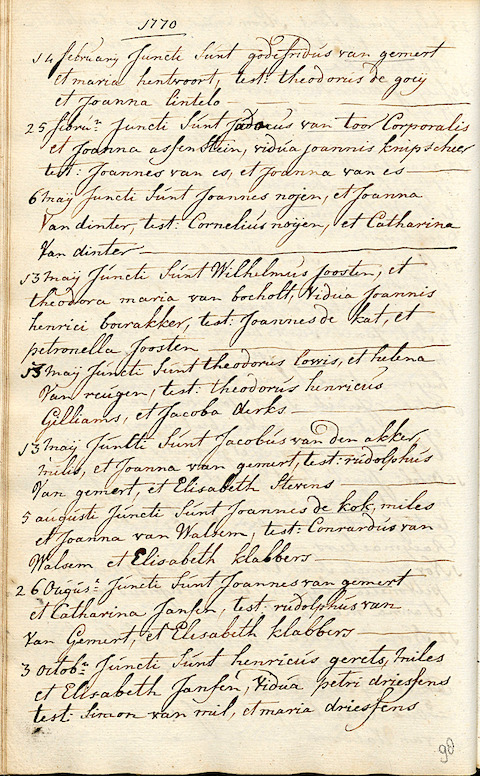 1770
14 februarij Juncti Sunt godefridus van gemert
et maria hentvoort, test: theodorus de goeij
et Joanna lintelo
25 febru: Juncti Sunt Jadocus van toor Corporalis
et Joanna assenstein, vidua joannis knipscheer
test: Joannes van es, et Joanna van es
6 maij Juncti Sunt Joannes nojen, et Joanna
Van dinter, test: Cornelius noijen, et Catharina
Van dinter
13 maij Juncti Sunt Wilhelmus Joosten, et
theodora maria van bocholt, Vidua Joannis
henrici boerakker, test: Joannes de kat, et
petronella Joosten
13 maij Juncti Sunt theodorus lowis, et helena
Van reugen, test: theodorus henricus
Gilliams, et Jacoba derks
13 maij Juncti Sunt Jacobus van den akker,
miles, et Joanna van gemert, test: rudolphus
Van gemert, et Elisabeth Stevens
5 augusti Juncti Sunt Joannes de kok, miles
et Joanna van Walsem, test: Conrardus van
Walsem et Elisabeth klabbers
26 Augus: Juncti Sunt Joannes van gemert
et Catharina Jansen, test: rudolphus van
Van Gemert, et Elesabeth klabbers
3 octob: Juncti Sunt henricus gerets, miles
et Elisabeth Jansen, Vidua petri driessens
test: Simon van mil, et maria driessens
98